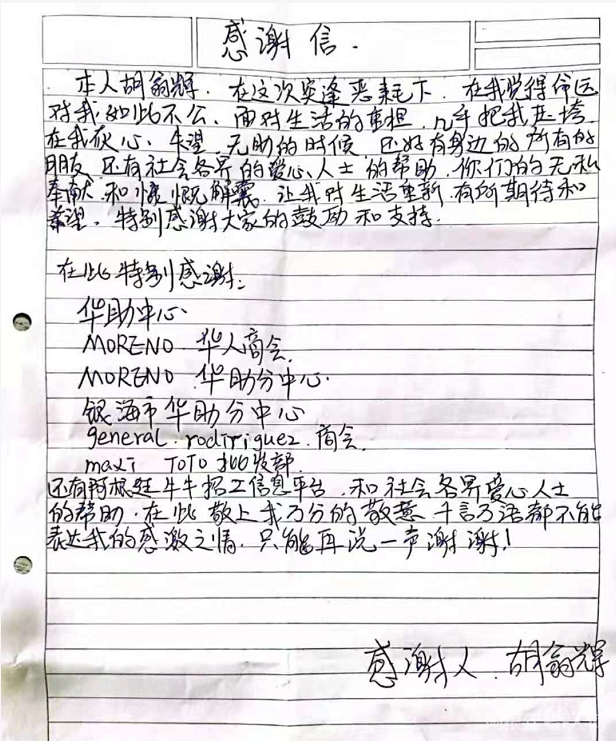 感谢信.
本人胡翁辉.在这次突逢恶耗下.在我觉得命运
对我如此不公.面对生活的重担.几乎把我压垮
在我灰心.失望.无助的时候.还好有身边的所有的
朋友.还有社会各界的爱心人士的帮助.你们的无私
奉献.和慷慨解囊.让我对生活重新.有所期待和
希望.特别感谢大家的鼓励和支持.
在此特别感谢:
华助中心.
MORENO.华人商会.
MORENO.华助分中心.
银海市华助分中心
general.rodiriguez.商会.
maxi TOTO批发部.
还有阿根廷牛牛招工信息平台.和社会各界爱心人士
的帮助.在此敬上我万分的敬意.千言万语都不能
表达我的感激之情.只能再说一声谢谢!
感谢人.胡翁辉